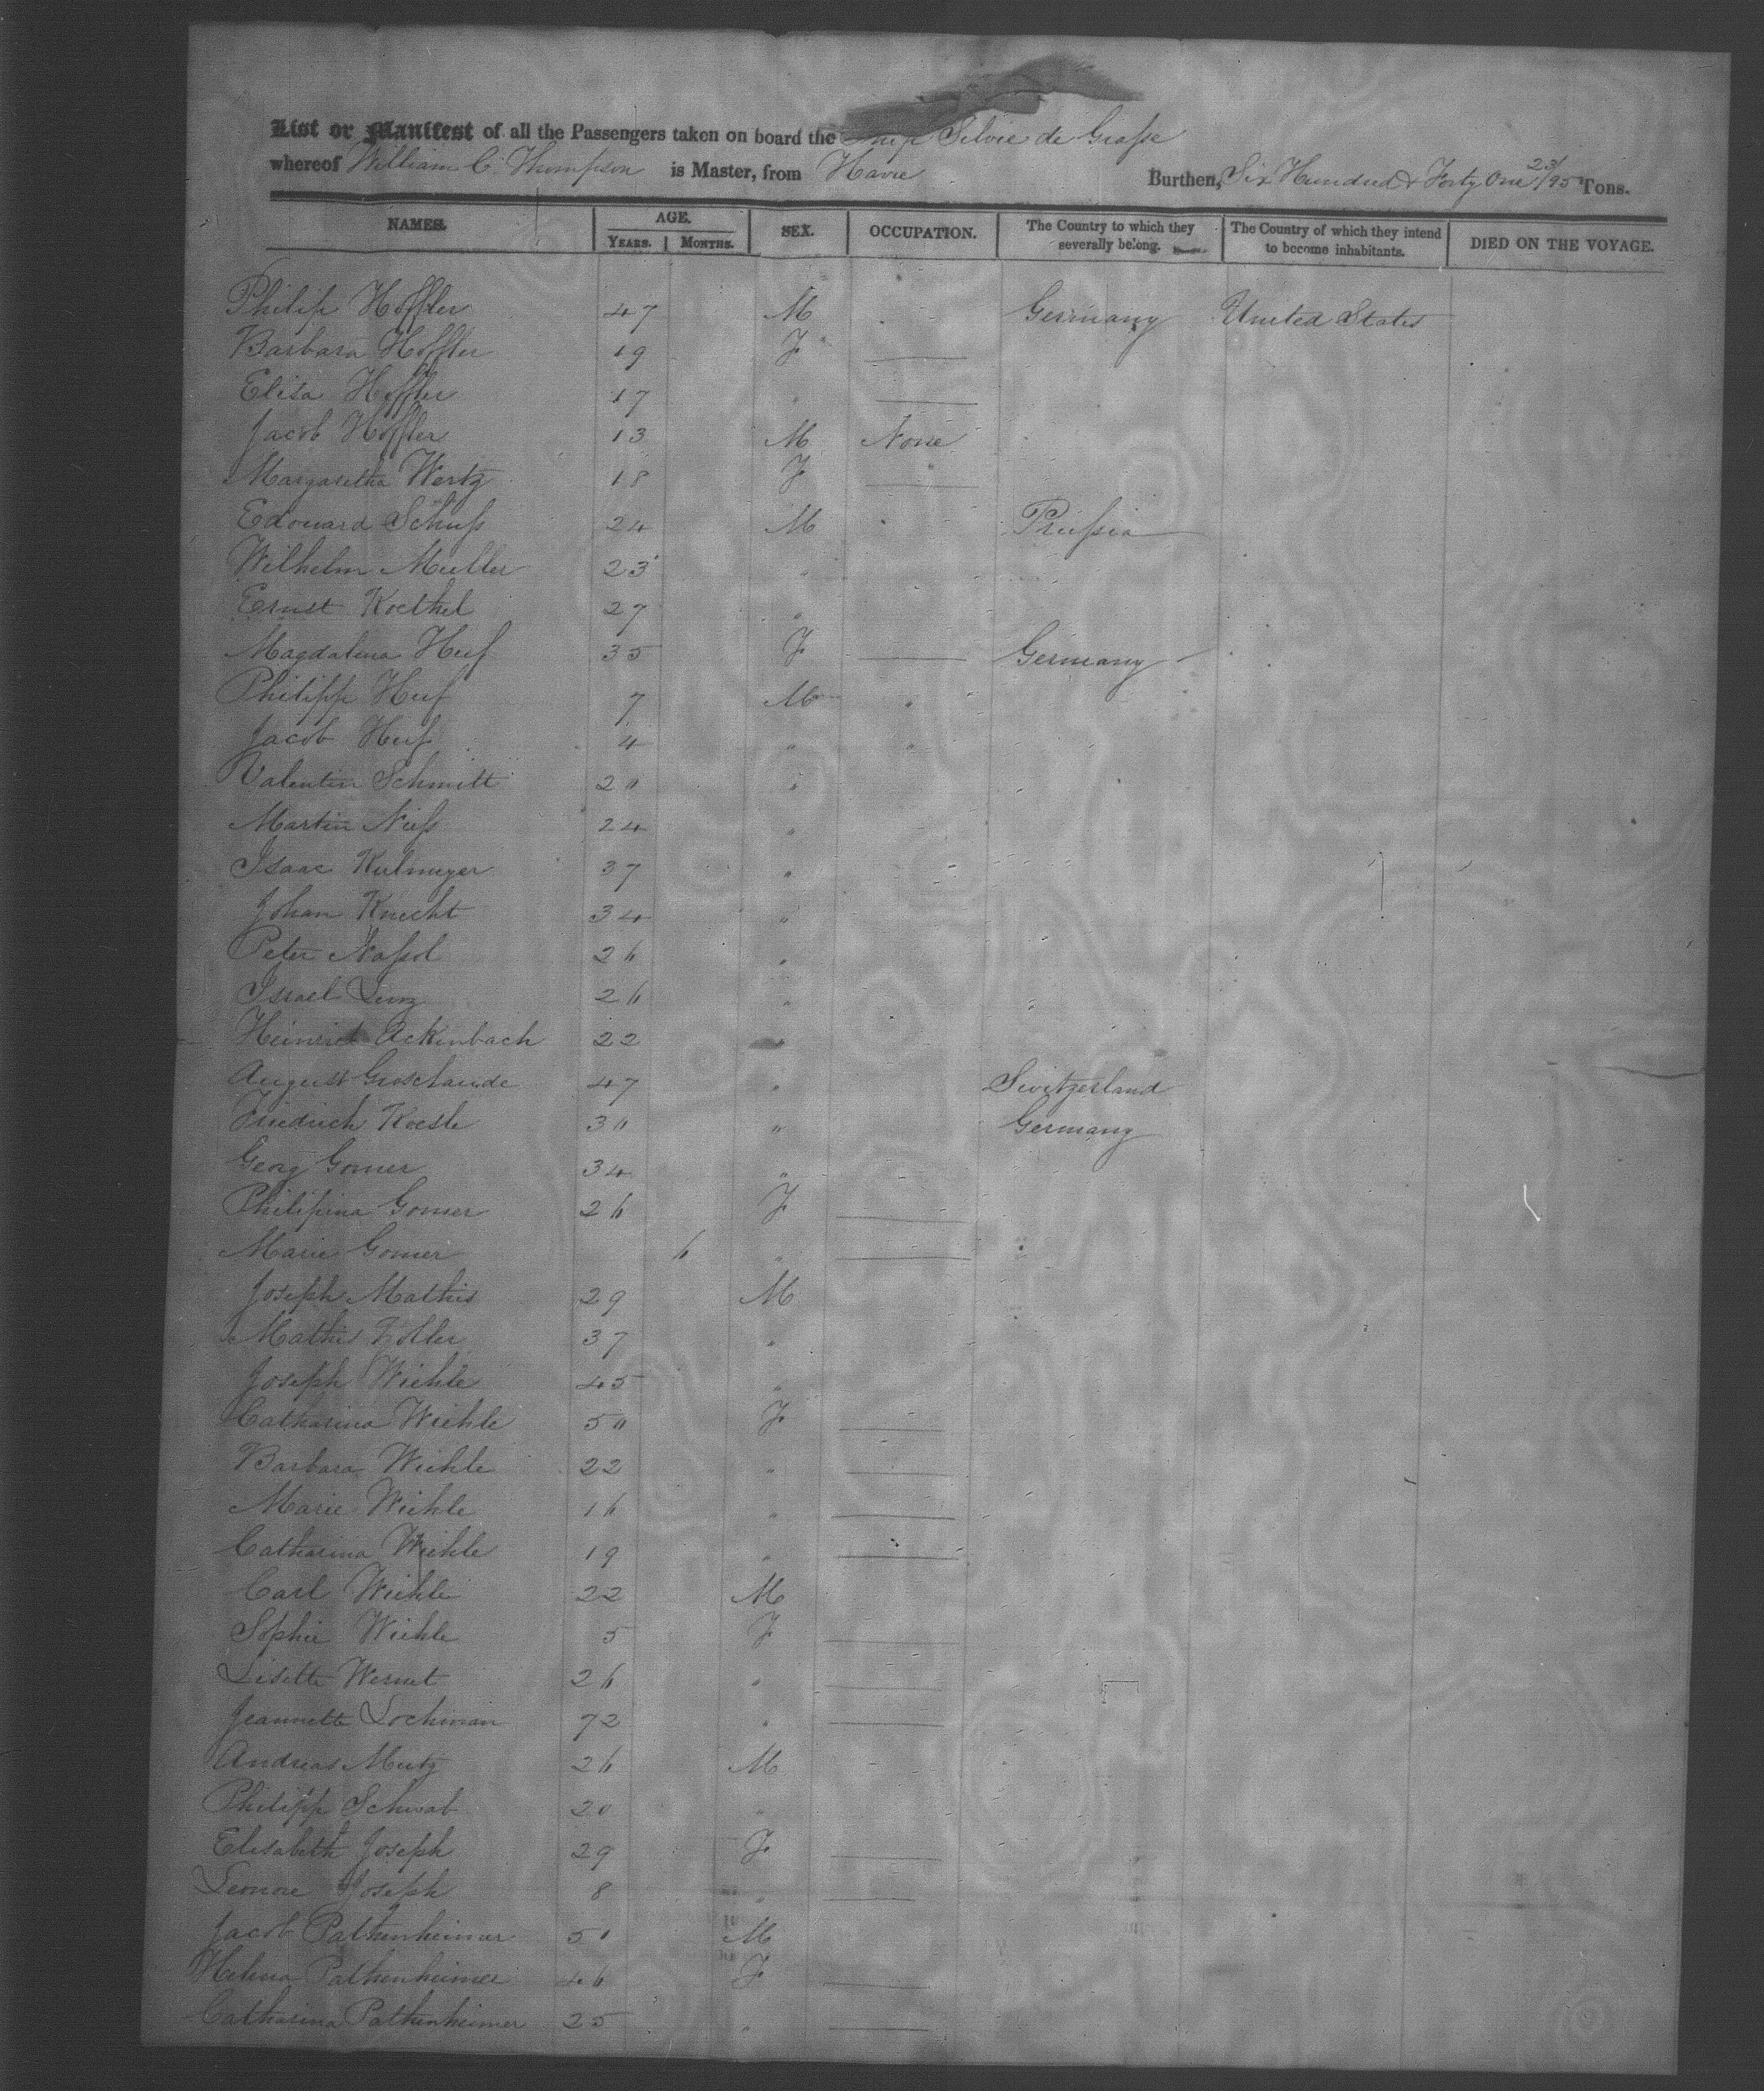 List or Manifest of all the Passengers taken on board the Ship Silvie de Grasse
whereof William C. Thompson is Master, from Havre Burthen, Six Hundred & Forty One 23/95 Tons.
NAMES. AGE. YEARS. MONTHS. SEX. OCCUPATION. The Country to which they severally belong. The Country of which they intend to become inhabitants. DIED ON THE VOYAGE.
Philip Hoffler 47 M Germany United States
Barbara Hoffler 19 F
Elisa Hoffler 17 "
Jacob Hoffler 13 M None
Margaretha Wertz 18 F
Edouard Schuss 24 M Prussia
Wilhelm Muller 23 "
Ernst Koethel 27 "
Magdalena Huf 35 F Germany
Philipp Huf 7 M "
Jacob Huf 4 " "
Valentin Schmitt 20 "
Martin Nuss 24 "
Isaac Kulmeyer 37 "
Johan Knecht 34 "
Peter 26 "
Israel Lenz 26 "
Heinrich Ackenbach 22 "
August Grosclaude 47 " Switzerland
Friedrich Koesle 30 " Germany
Georg Gomer 34 "
Philipina Gomer 26 F
Marie Gomer 6 "
Joseph Mathis 29 M
Mathis 37 "
Joseph Wiehle 45 "
Catharina Wiehle 50 F
Barbara Wiehle 22 "
Marie Wiehle 16 "
Catharina Wiehle 19 "
Carl Wiehle 22 M
Sophie Wiehle 5 F
Lisette Wernet 26 "
Jeannette Lochman 72 "
Andreas Mutz 26 M
Philipp Schwab 20 "
Elisabeth Joseph 29 F
Leonore Joseph 8 "
Jacob Pathenheimer 50 M
Helena Pathenheimer 46 F
Catharina Pathenheimer 25 "